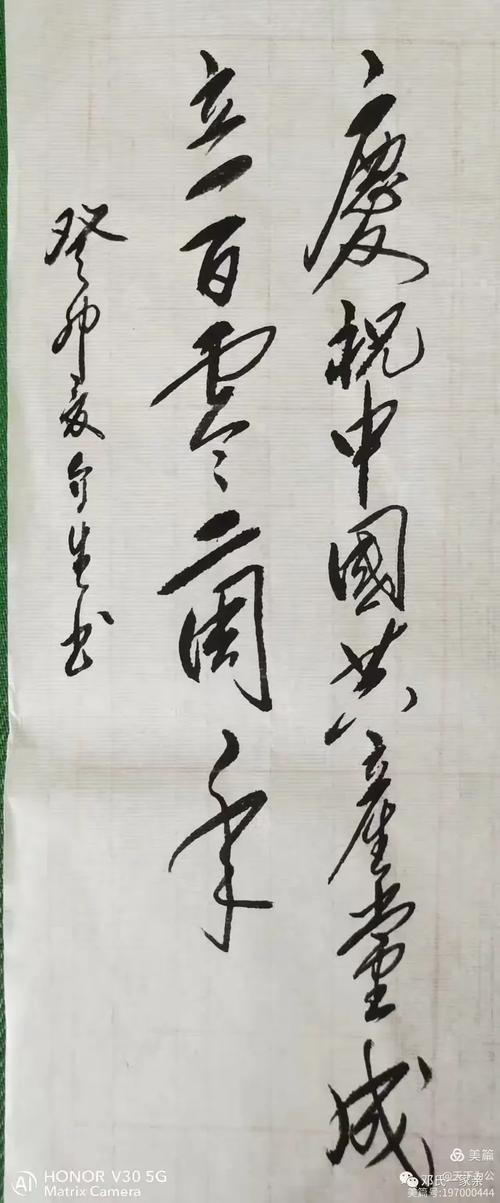 慶祝中國共產黨成
立一百零二周年
癸卯夏自生书
HONOR V30 5G
Matrix Camera
美篇
天下为公
邓氏一家亲
美篇号:197000444